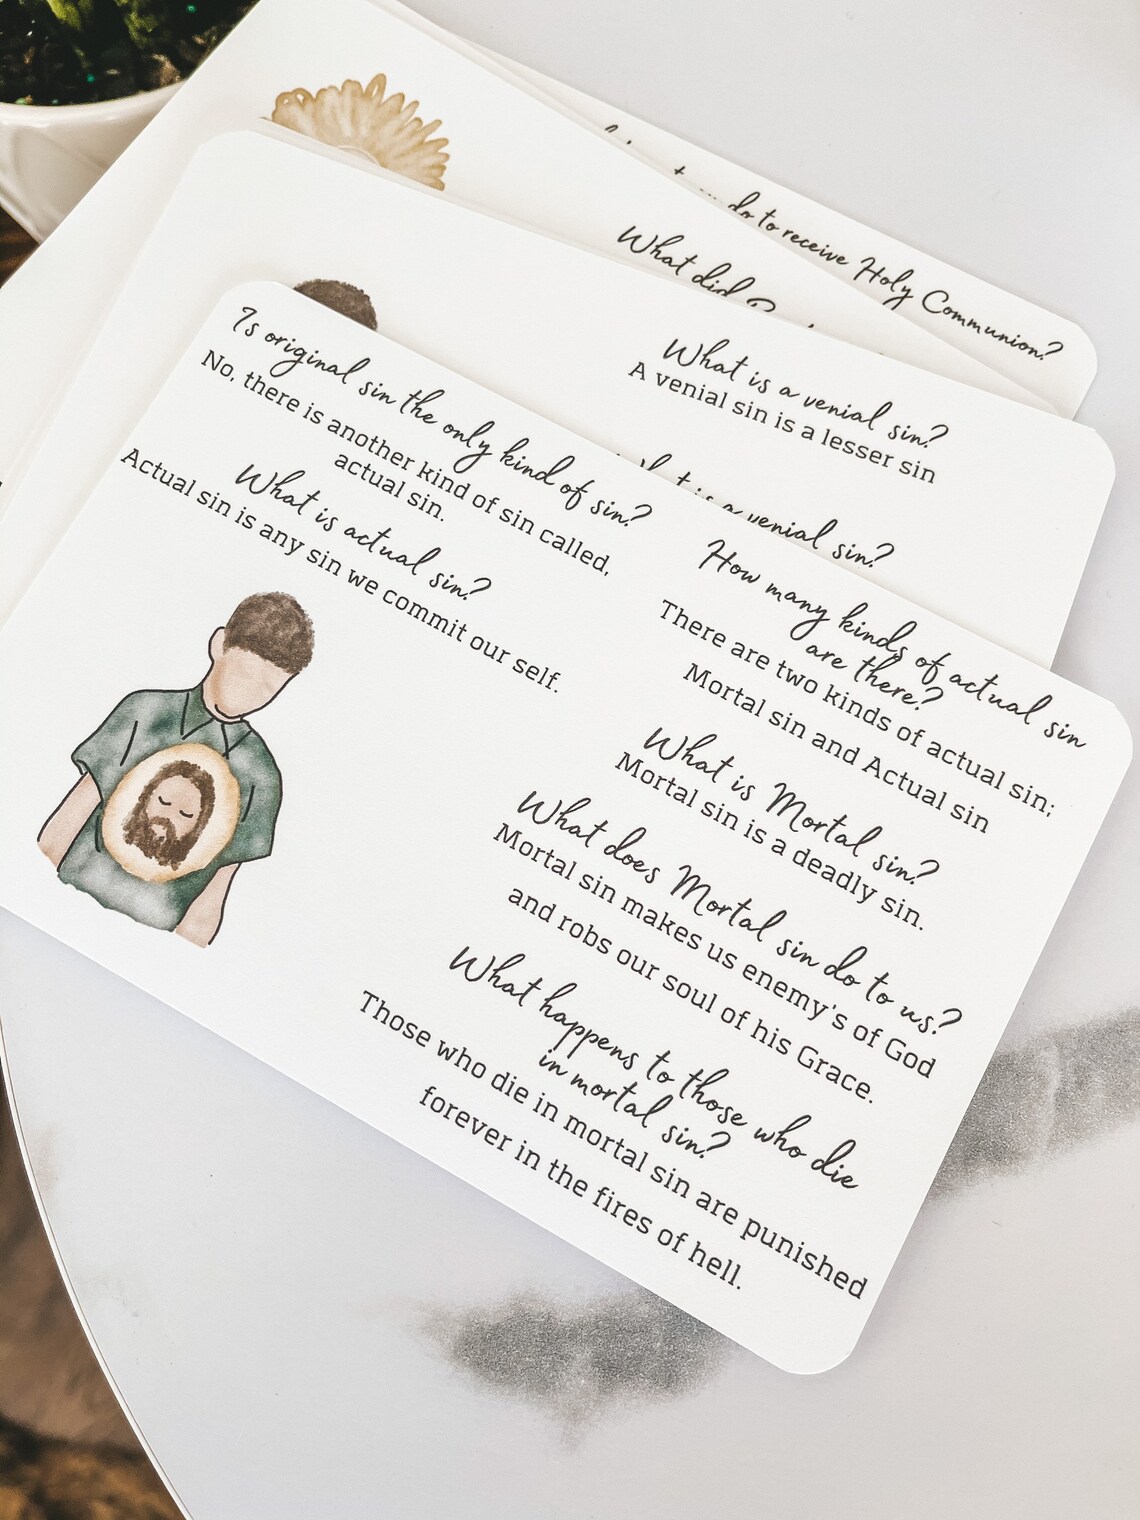 Is original sin the only kind of sin?
No, there is another kind of sin called,
actual sin.
What is actual sin?
Actual sin is any sin we commit our self.
How many kinds of actual sin
are there?
There are two kinds of actual sin;
Mortal sin and Actual sin
What is Mortal sin?
Mortal sin is a deadly sin.
What does Mortal sin do to us?
Mortal sin makes us enemy's of God
and robs our soul of his Grace.
What happens to those who die
in mortal sin?
Those who die in mortal sin are punished
forever in the fires of hell.
What is a venial sin?
A venial sin is a lesser sin
is a venial sin?
What did
do to receive Holy Communion?